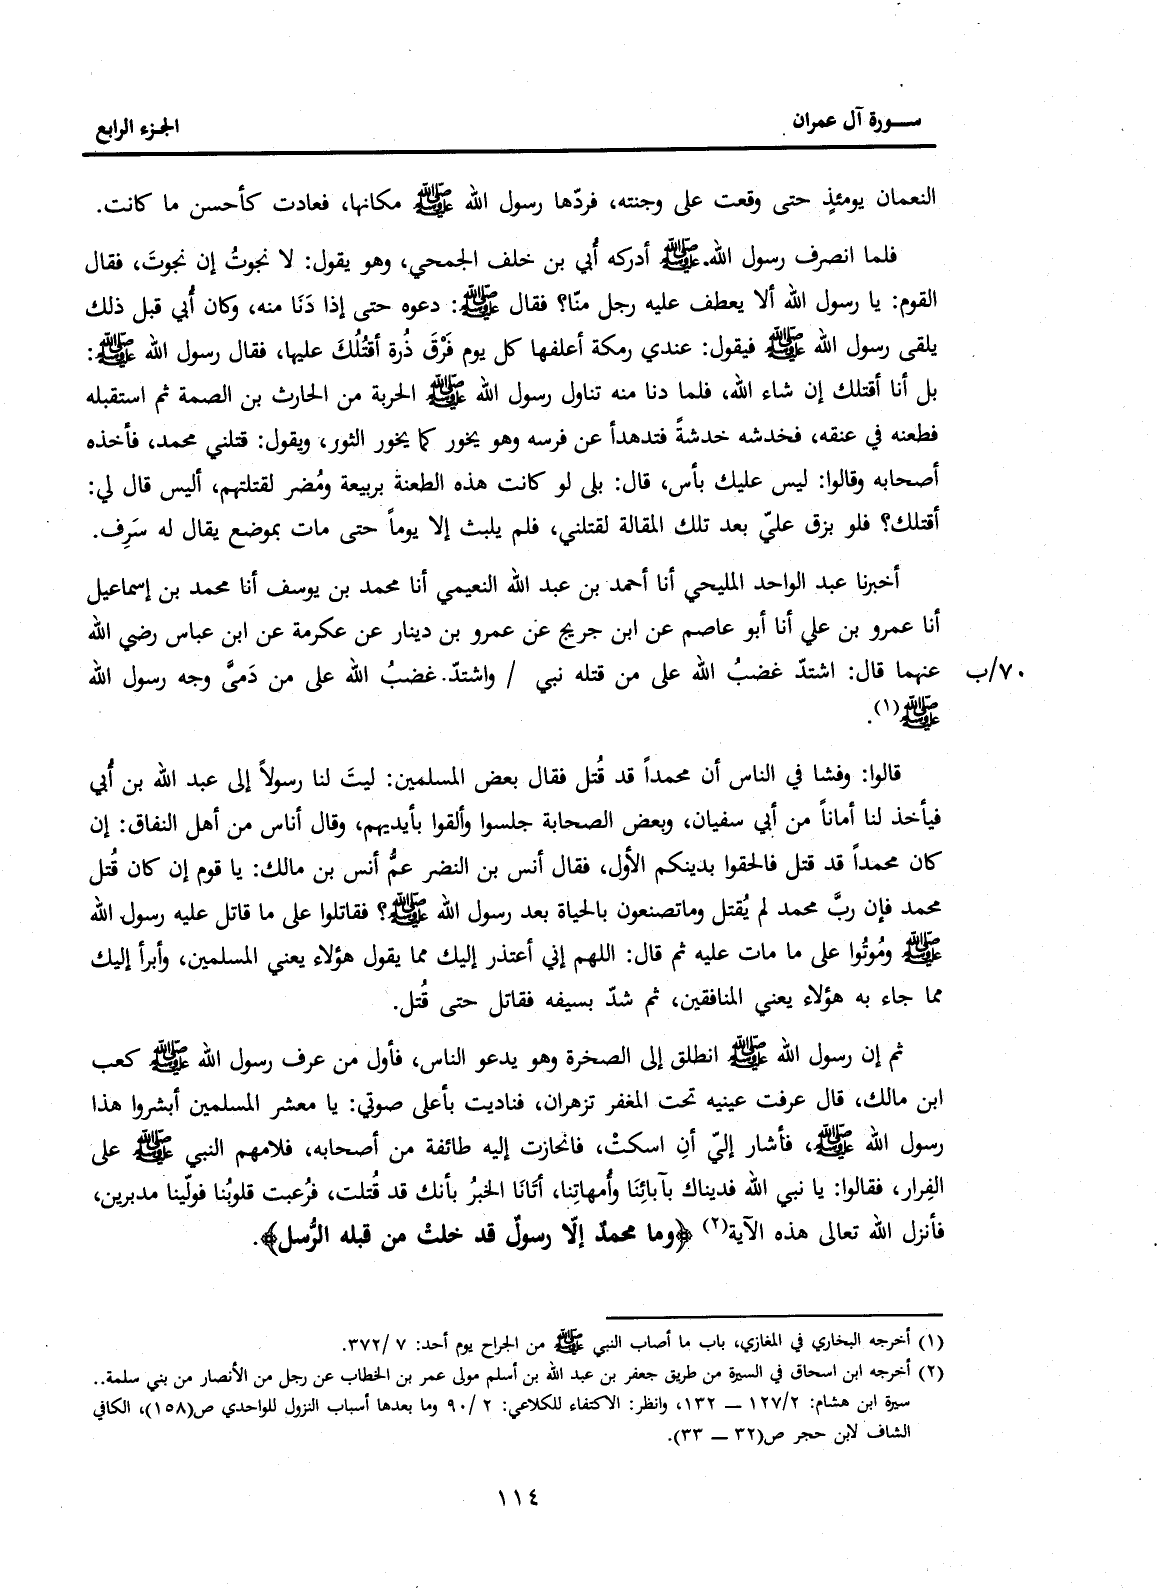 سورة آل عمران
الجزء الرابع
النعمان يومئذٍ حتى وقعت على وجنته، فردّها رسول الله ﷺ مكانها، فعادت كأحسن ما كانت.
فلما انصرف رسول الله ﷺ أدركه أُبي بن خلف الجمحي، وهو يقول: لا نجوتُ إن نجوتَ، فقال
القوم: يا رسول الله ألا يعطف عليه رجل منّا؟ فقال ﷺ: دعوه حتى إذا دَنَا منه، وكان أُبي قبل ذلك
يلقى رسول الله ﷺ فيقول: عندي رمكة أعلفها كل يوم فَرْقَ ذُرة أقتُلُكَ عليها، فقال رسول الله ﷺ:
بل أنا أقتلك إن شاء الله، فلما دنا منه تناول رسول الله ﷺ الحربة من الحارث بن الصمة ثم استقبله
فطعنه في عنقه، فخدشه خدشةً فتدهدأ عن فرسه وهو يخور كما يخور الثور، ويقول: قتلني محمد، فأخذه
أصحابه وقالوا: ليس عليك بأس، قال: بلى لو كانت هذه الطعنة بربيعة ومُضر لقتلتهم، أليس قال لي:
أقتلك؟ فلو بزق عليّ بعد تلك المقالة لقتلني، فلم يلبث إلا يوماً حتى مات بموضع يقال له سَرِف.
أخبرنا عبد الواحد المليحي أنا أحمد بن عبد الله النعيمي أنا محمد بن يوسف أنا محمد بن إسماعيل
أنا عمرو بن علي أنا أبو عاصم عن ابن جريج عن عمرو بن دينار عن عكرمة عن ابن عباس رضي الله
عنهما قال: اشتدّ غضبُ الله على من قتله نبي / واشتدّ غضبُ الله على من دَمىَّ وجه رسول الله
٧٠/ب
ﷺ(١).
قالوا: وفشا في الناس أن محمداً قد قُتل فقال بعض المسلمين: ليتَ لنا رسولاً إلى عبد الله بن أُبي
فيأخذ لنا أماناً من أبي سفيان، وبعض الصحابة جلسوا وألقوا بأيديهم، وقال أناس من أهل النفاق: إن
كان محمداً قد قتل فالحقوا بدينكم الأول، فقال أنس بن النضر عمُّ أنس بن مالك: يا قوم إن كان قُتل
محمد فإن ربَّ محمد لم يُقتل وماتصنعون بالحياة بعد رسول الله ﷺ؟ فقاتلوا على ما قاتل عليه رسول الله
ﷺ ومُوتُوا على ما مات عليه ثم قال: اللهم إني أعتذر إليك مما يقول هؤلاء يعني المسلمين، وأبرأ إليك
مما جاء به هؤلاء يعني المنافقين، ثم شدّ بسيفه فقاتل حتى قُتل.
ثم إن رسول الله ﷺ انطلق إلى الصخرة وهو يدعو الناس، فأول من عرف رسول الله ﷺ كعب
ابن مالك، قال عرفت عينيه تحت المغفر تزهران، فناديت بأعلى صوتي: يا معشر المسلمين أبشروا هذا
رسول الله ﷺ، فأشار إليّ أنِ اسكتْ، فانحازت إليه طائفة من أصحابه، فلامهم النبي ﷺ على
الفِرار، فقالوا: يا نبي الله فديناك بآبائِنَا وأُمهاتِنا، أتَانَا الخبرُ بأنك قد قُتلت، فرُعبت قلوبُنا فولّينا مدبرين،
فأنزل الله تعالى هذه الآية(٢) ﴿وما محمدٌ إلّا رسولٌ قد خلتْ من قبله الرُّسل﴾.
(١) أخرجه البخاري في المغازي، باب ما أصاب النبي ﷺ من الجراح يوم أحد: ٧ /٣٧٢.
(٢) أخرجه ابن اسحاق في السيرة من طريق جعفر بن عبد الله بن أسلم مولى عمر بن الخطاب عن رجل من الأنصار من بني سلمة..
سيرة ابن هشام: ١٢٧/٢ — ١٣٢، وانظر: الاكتفاء للكلاعي: ٢ /٩٠ وما بعدها أسباب النزول للواحدي ص(١٥٨)، الكافي
الشاف لابن حجر ص(٣٢ — ٣٣).
١١٤